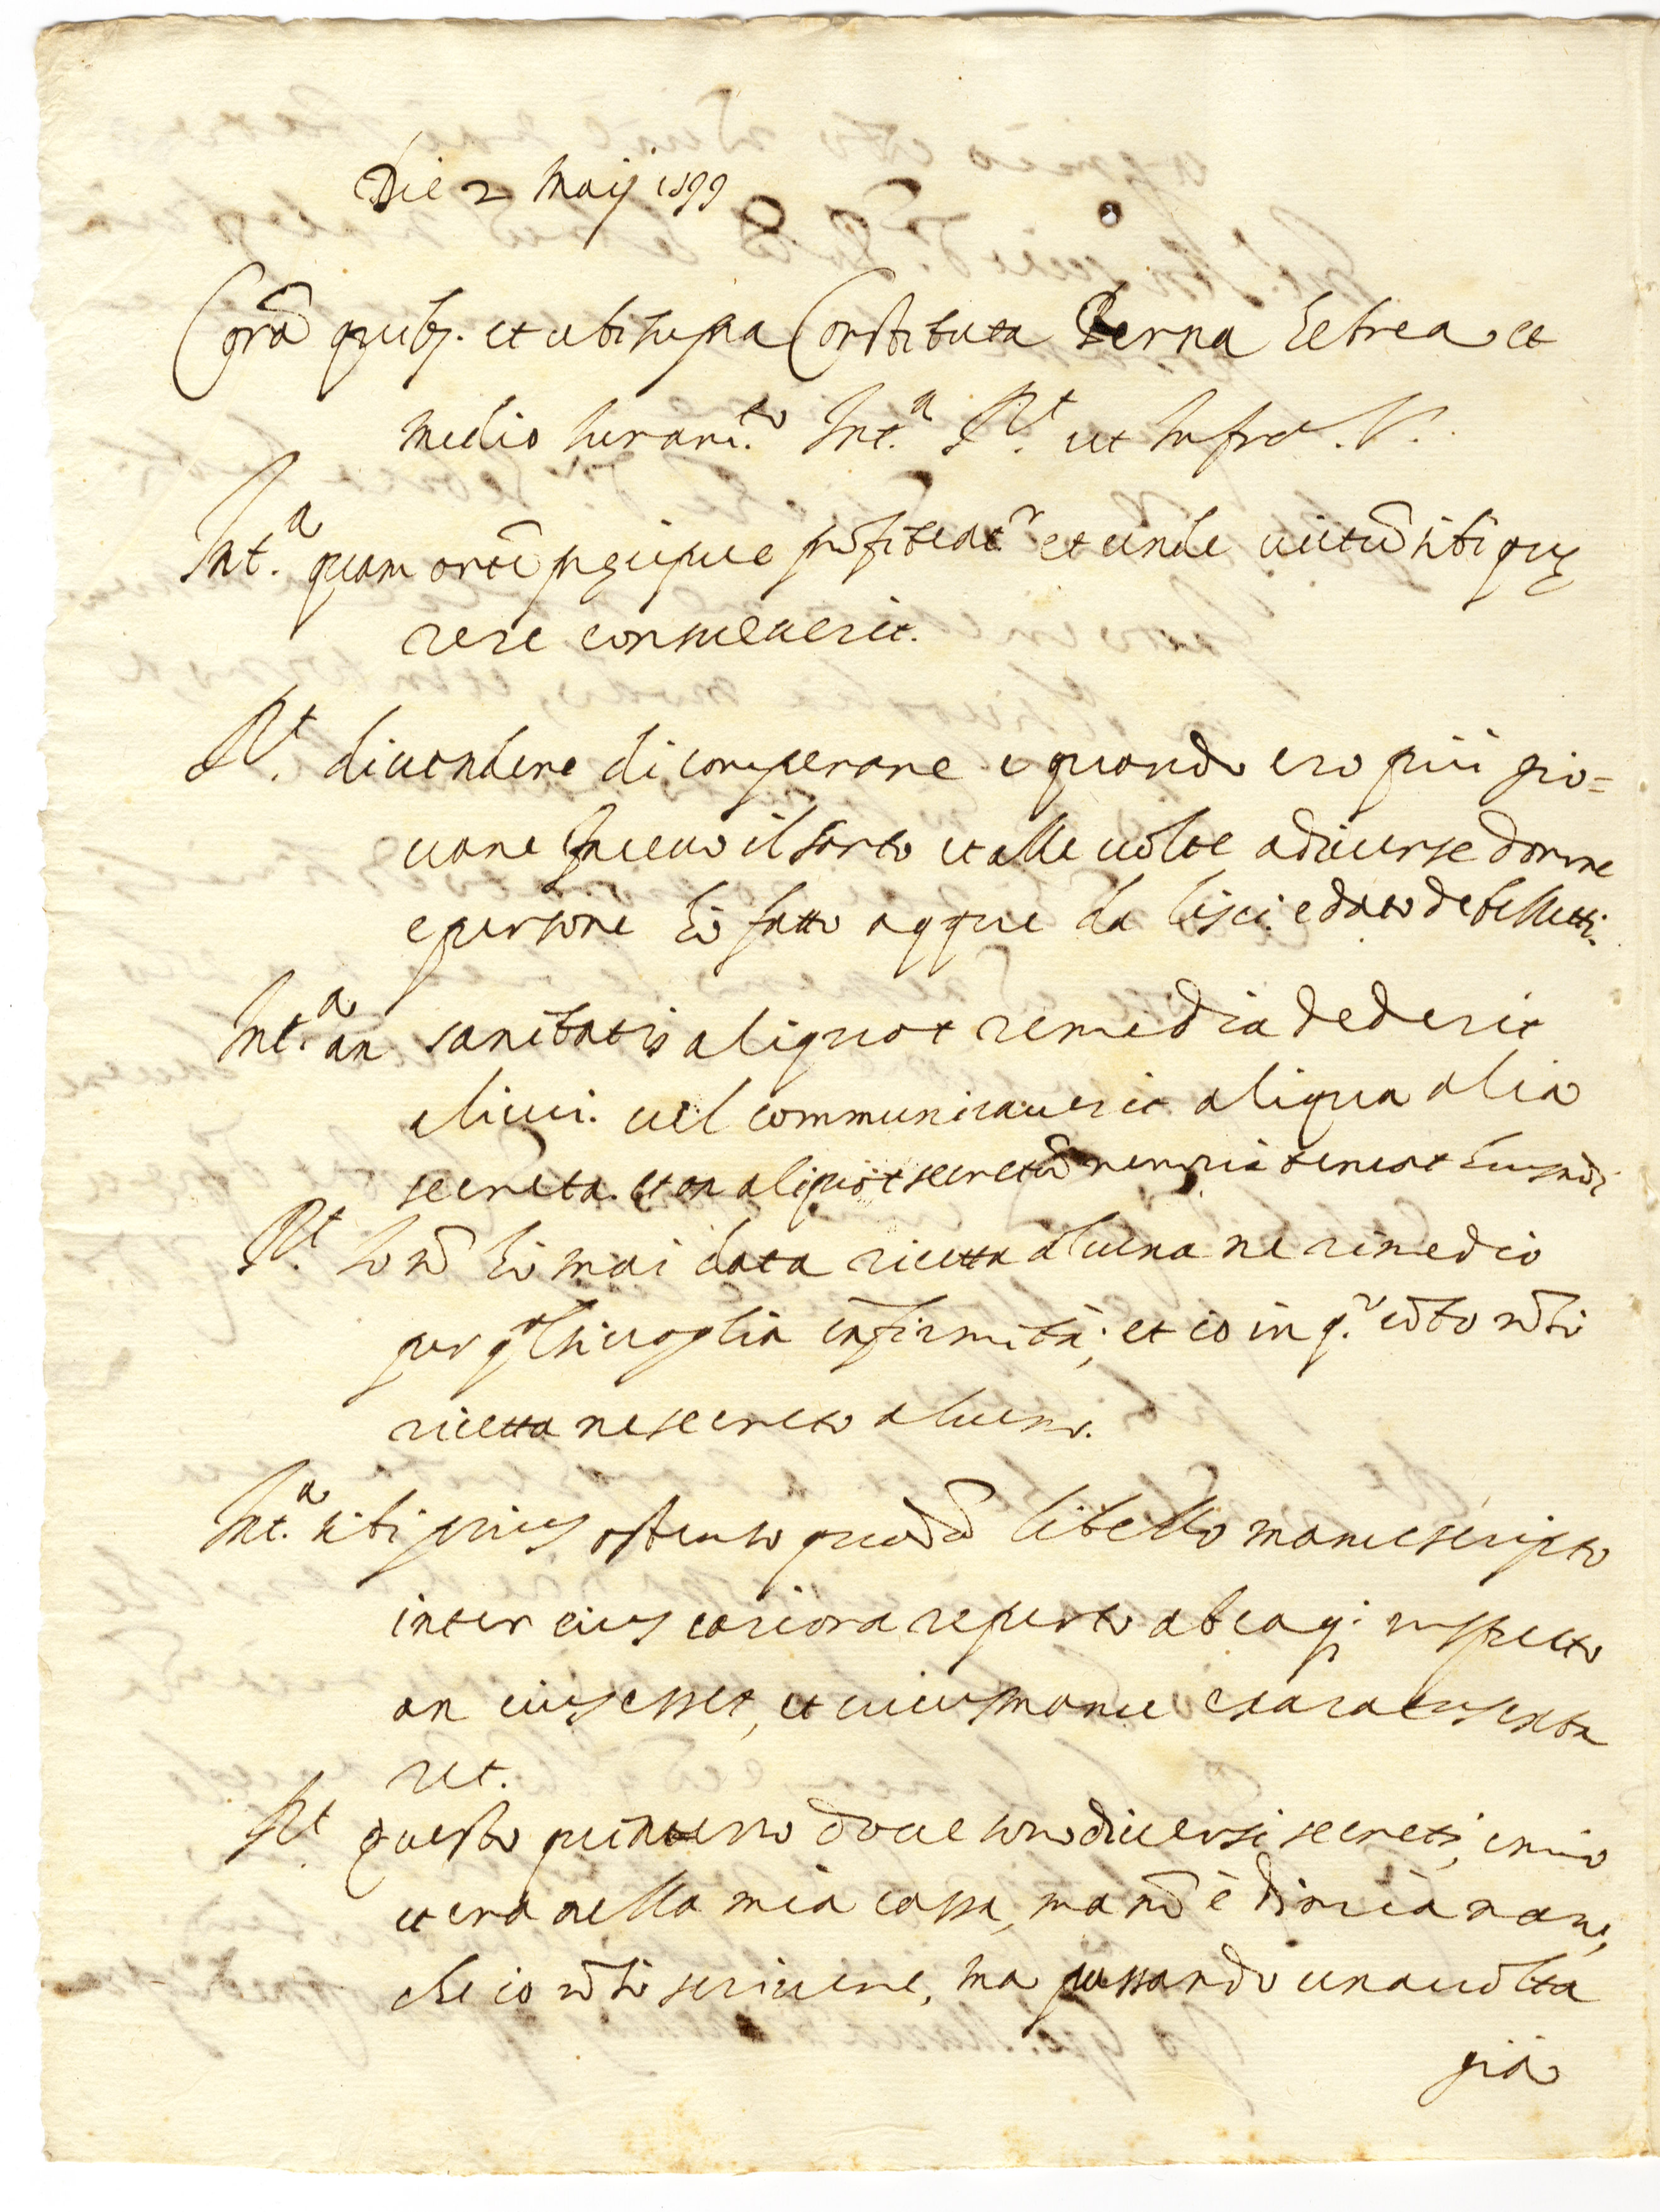 Die 2 Maij 1599
Corã quibs. et ubi supra Constituta Perna hebrea et
medio Iuram.to Int.a Rt. ut infra. V.
Int.a quam artẽ precipue profiteat.r et unde uictũ sibi quę
rere consueuerit.
Rt. di uendere di comperare e quando ero più gio=
uane faceuo il sarto et alle uolte a diuerse donne
e persone hò fatto acque da lisci e dato de belletti.
Int.a an sanitatis aliquot remedia dederit
alicui. uel communicauerit aliqua alia
secreta. et an aliquot secretũ memoria teneat huiusmõi
Rt. Io nõ hò mai data ricetta alcuna ne rimedio
per q.l si uoglia infirmità, et io in q.to cõto nõ sò
ricetta ne secreto alcuno.
Int.a sibi prius ostenso quodã libello manuscripto
inter eius cariora reperto ab eaq; inspecto
an eius esset, et cuius manu exaratus exta
ret.
Rt. questo quinterno doue sono diuersi secreti, e mio
et era nella mia cassa, ma nõ è di mia mano,
che io nõ sò scriuere, ma passando una uolta
già